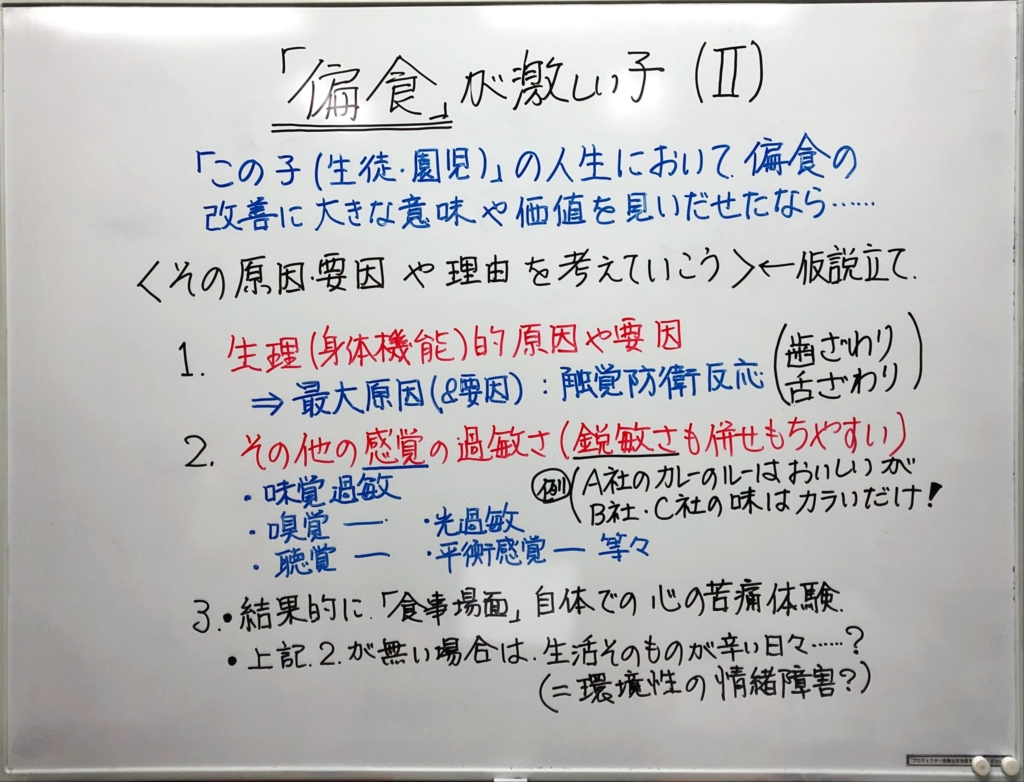 「偏食」が激しい子(Ⅱ)
「この子(生徒・園児)」の人生において、偏食の
改善に大きな意味や価値を見いだせたなら……
〈その原因・要因 や理由を考えていこう〉←仮説立て.
1. 生理(身体機能)的原因や要因
⇒ 最大原因(&要因):触覚防衛反応(歯ざわり
舌ざわり)
2. その他の感覚の過敏さ(鋭敏さも併せもちやすい)
・味覚過敏
例(A社のカレーのルーはおいしいが
B社・C社の味はカラいだけ!
・嗅覚 ― ・光過敏
・聴覚 ― ・平衡感覚 ― 等々
3.・結果的に「食事場面」自体での心の苦痛体験.
・上記.2.が無い場合は.生活そのものが辛い日々……?
(=環境性の情緒障害?)